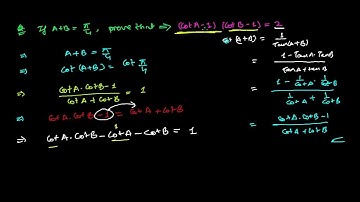 Q If A+B = π/4, prove that ⇒ (CotA-1) (CotB-1) = 2
⇒ A+B = π/4
⇒ Cot (A+B) = Cot π/4
⇒ (CotA.CotB-1)/(CotA+CotB) = 1
⇒ CotA.CotB-1 = CotA+CotB
⇒ CotA.CotB-CotA-CotB = 1
Cot (A+B) = 1/Tan(A+B)
= (1-TanA.TanB)/(TanA+TanB)
= (1-1/CotA.1/CotB)/(1/CotA+1/CotB)
= (CotA.CotB-1)/(CotA+CotB)